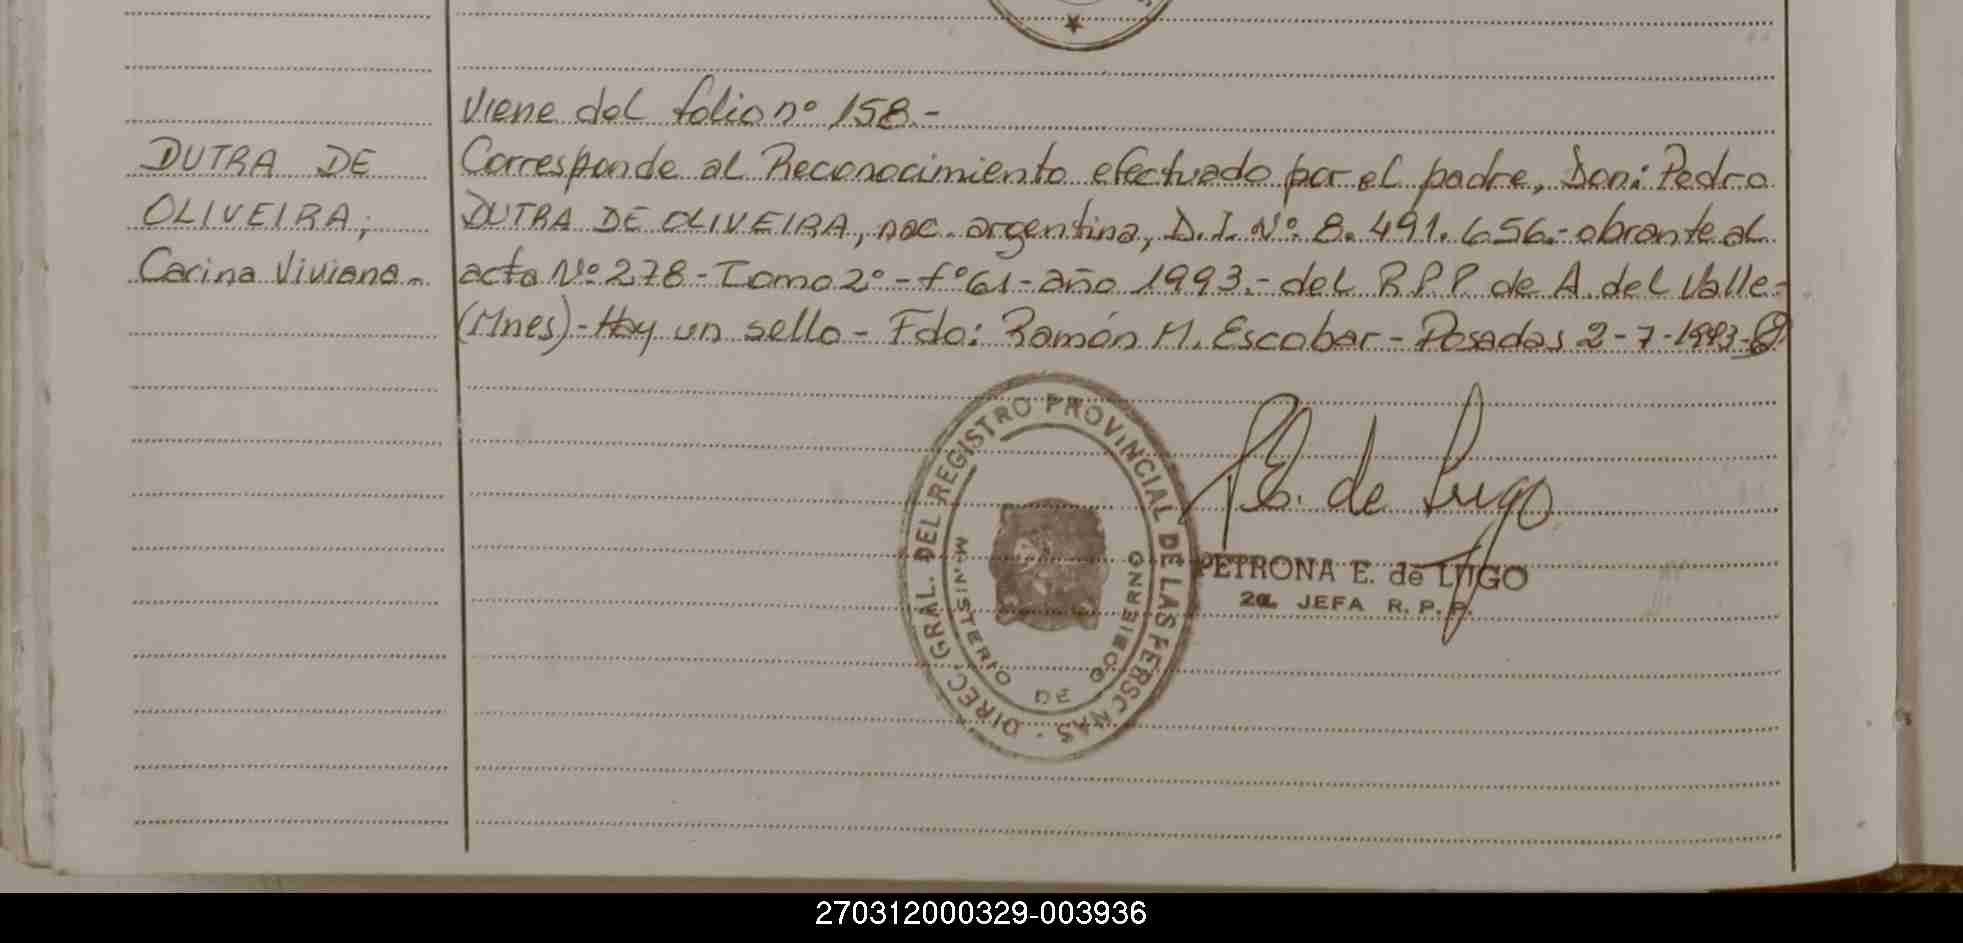 Viene del folio nº 158.-
DUTRA DE
OLIVEIRA;
Carina Viviana.-
Corresponde al Reconocimiento efectuado por el padre, Don: Pedro
DUTRA DE OLIVEIRA, nac. argentina, D.I. Nº: 8.491.656.- obrante al
acta Nº 278 - Tomo 2º - fº 61 - año 1993.- del R.P.P de A. del Valle-
(Mnes) - Hay un sello - Fdo: Ramón M. Escobar - Posadas 2-7-1993-
DIREC. GRAL. DEL REGISTRO PROVINCIAL DE LAS PERSONAS
MINISTERIO DE GOBIERNO
P.E. de Lugo
PETRONA E. de LUGO
2a. JEFA R.P.P.
270312000329-003936